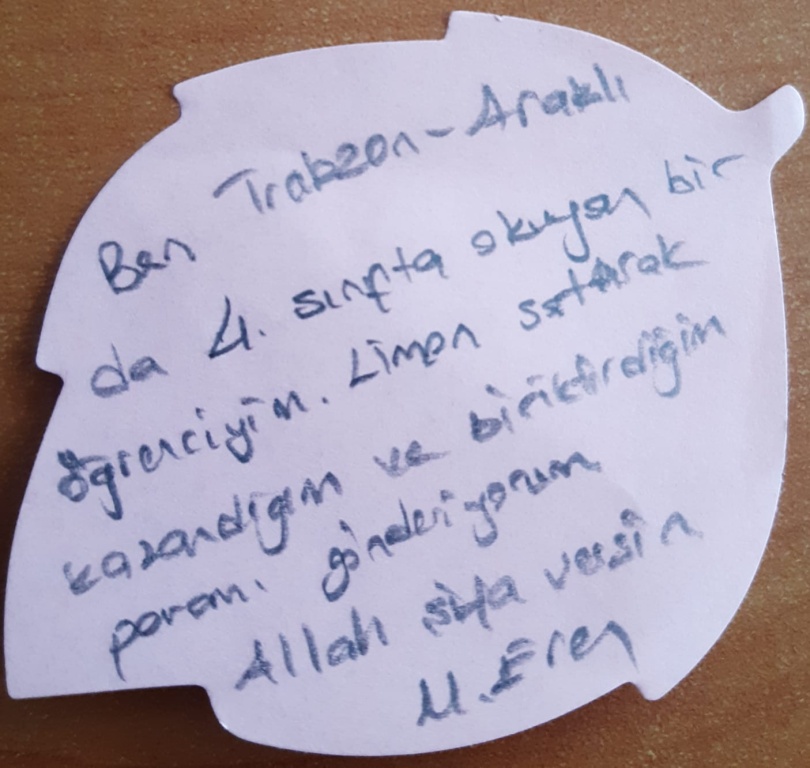 Ben Trabzon-Araklı
da 4. sınıfta okuyan bir
öğrenciyim. Limon satarak
kazandığım ve biriktirdiğim
paramı gönderiyorum
Allah şifa versin
M. Eren